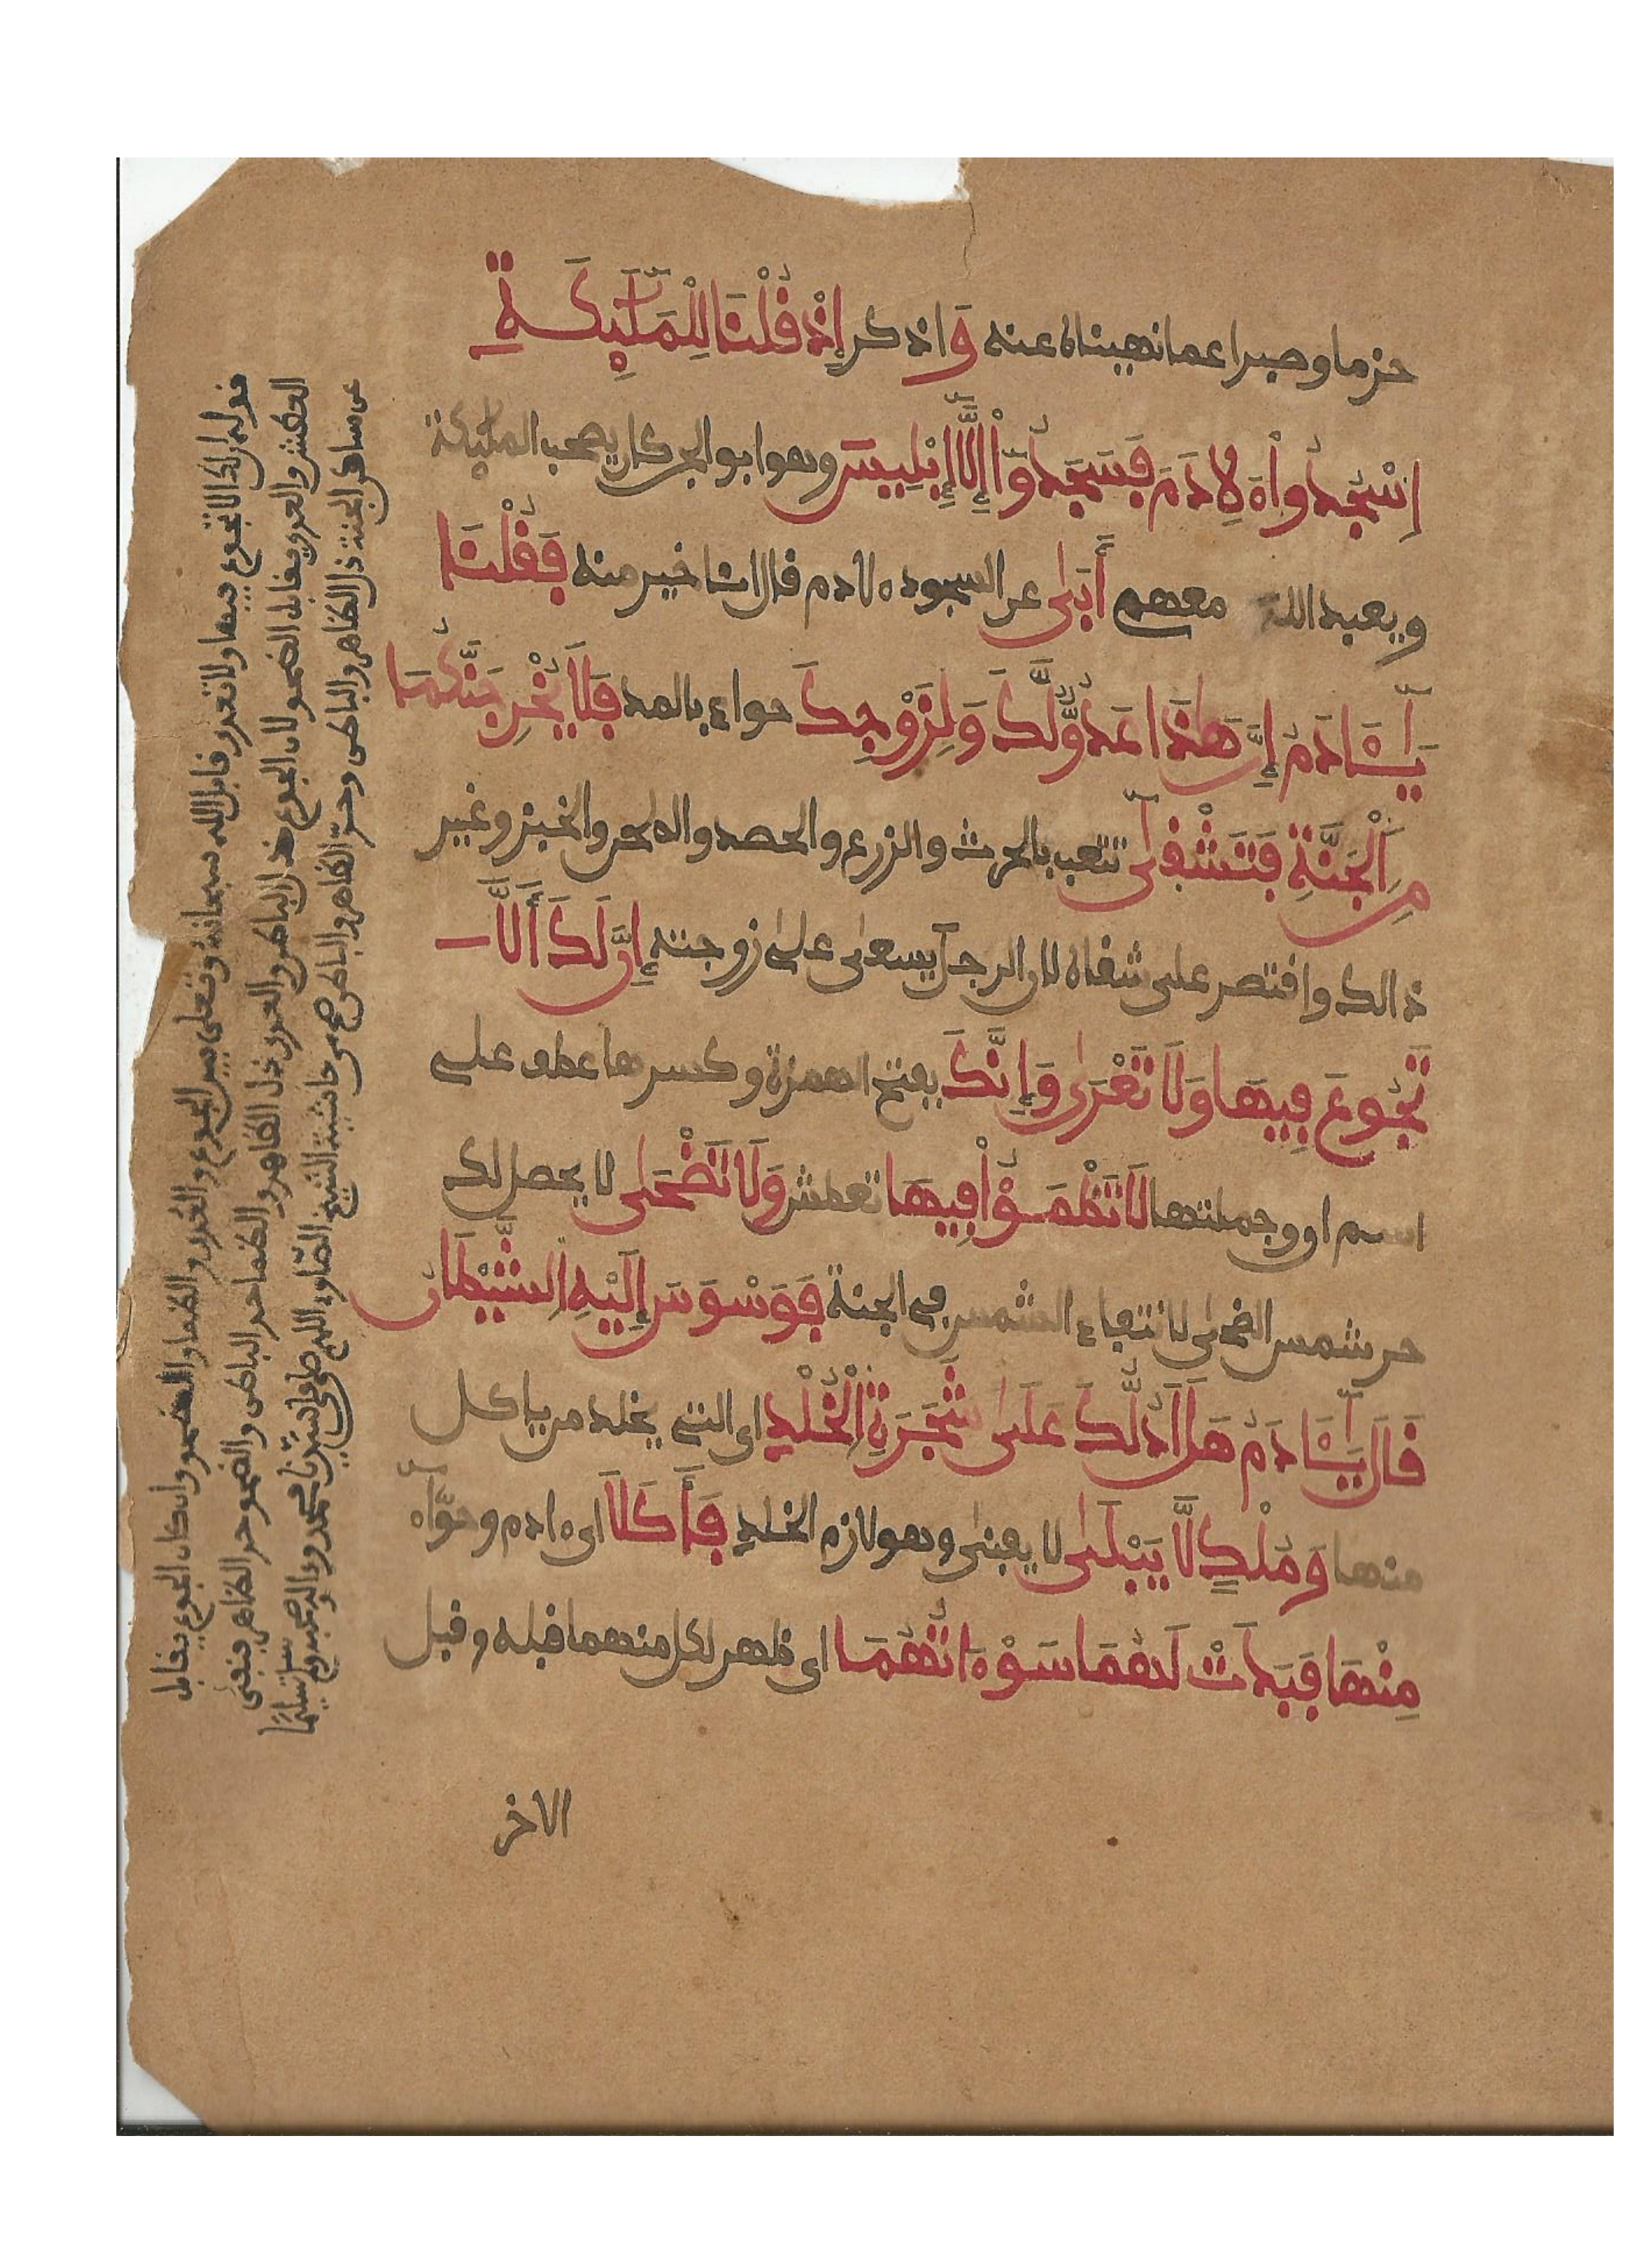 حزما وصبرا عما نهيناه عنه وَاذكر إِذْ قُلْنَا لِلْمَلَٰٓئِكَةِ
اِ۟سْجُدُوا۟ ءَلِادَمَ فَسَجَدُوٓا۟ إِلَّآ إِبْلِيسَ وهو ابو الجن كان يصحب الملئكة
ويعبد الله معهم أَبَىٰ عن السجود ءلادم فال انا خير منه فَقُلْنَا
يَٰٓـَٔادَمُ إِنَّ هَٰذَا عَدُوٌّ لَّكَ وَلِزَوْجِكَ حواء بالمد فَلَا يُخْرِجَنَّكُمَا
مِنَ اَ۬لْجَنَّةِ فَتَشْقَىٰٓ تتعب بالحرث والزرع والحصد والطحن والخبز وغير
ذالك واقتصر على شقاه لان الرجل يسعى على زوجته إِنَّ لَكَ أَلَّا
تَجُوعَ فِيهَا وَلَا تَعْرَىٰ وَإِنَّكَ بفتح الهمزة وكسرها عطف على
اسم ان وجملتها لَا تَظْمَؤُا۟ فِيهَا تعطش وَلَا تَضْحَىٰ لا يحصل لك
حر شمس الضحى لانتفاء الشمس في الجنة فَوَسْوَسَ إِلَيْهِ اِ۬لشَّيْطَٰنُ
قَالَ يَٰٓـَٔادَمُ هَلَ اَدُلُّكَ عَلَىٰ شَجَرَةِ اِ۬لْخُلْدِ اى التي يخلد من ياكل
منها وَمُلْكٍ لَّا يَبْلَىٰ لا يفنى وهو لازم الخلد فَأَكَلَا اى ءادم وحوّاء
مِنْهَا فَبَدَتْ لَهُمَا سَوْءَٰتُهُمَا اى ظهر لكل منهما قبله وقبل
الاخر
قوله ان لك الا تجوع فيها ولا تعرى قابل الله سبحانه وتعلى بين الجوع والعرى والظما والضحو وان كان الجوع يقابل
العطش والعرى يقابل الضحو لان الجوع ذل الباطن والعرى ذل الظاهر والظما حر الباطن والضحو حر الظاهر فنفى
عن ساكن الجنة ذل الظاهر والباطن وحرّ الظاهر والباطن صح من حاشية الشيخ الصّاوي اللهم صل على سيّدنا محمد وءاله وصحبه وسلم تسليمًا